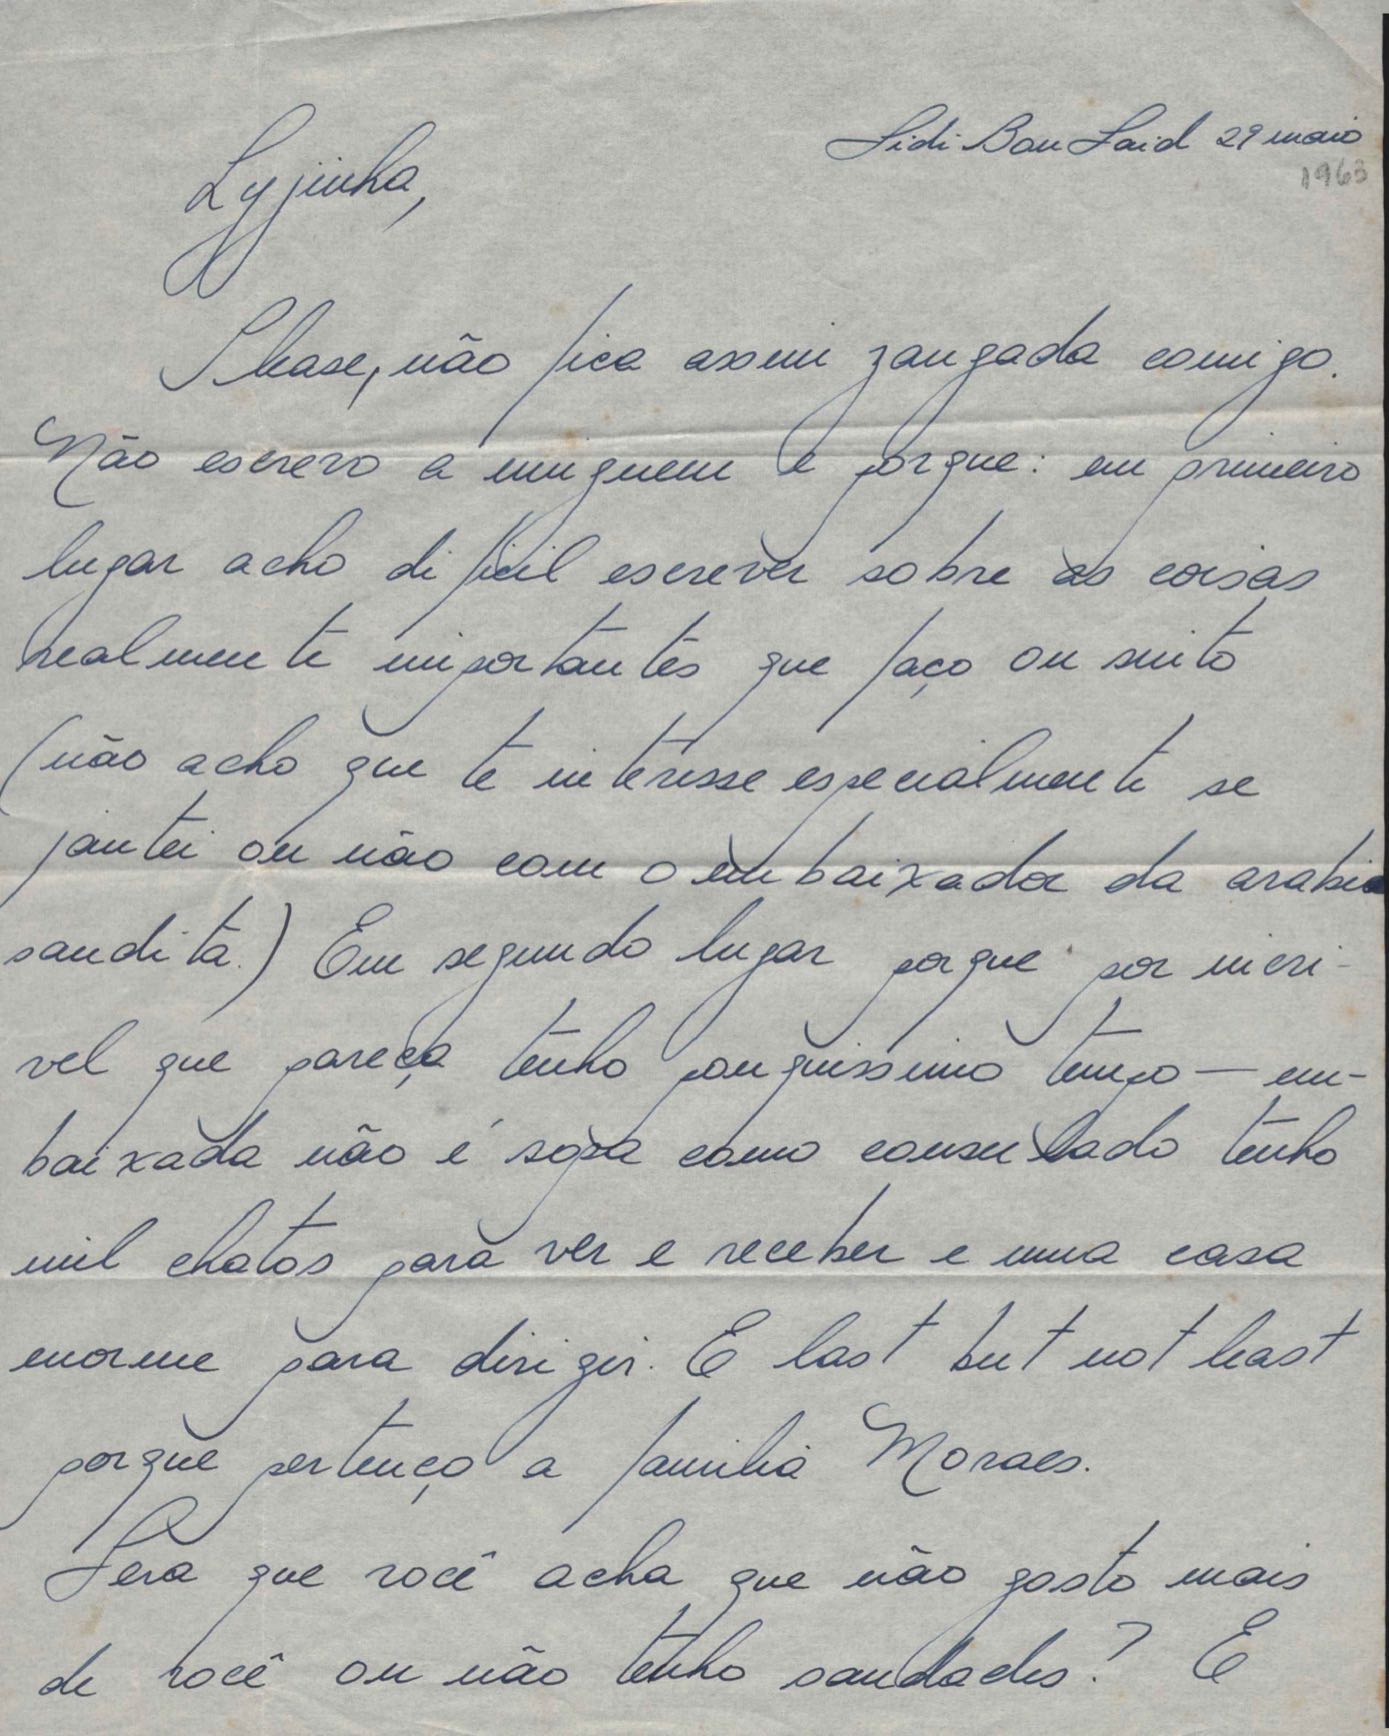 Sidi Bou Said 29 maio
1963
Lyginha,
Please, não fica assim zangada comigo.
Não escrevo a ninguem e porque: em primeiro
lugar acho dificil escrever sobre as coisas
realmente importantes que faço ou sinto
(não acho que te interesse especialmente se
jantei ou não com o embaixador da arabia
saudita.) Em segundo lugar porque por incri-
vel que pareça tenho pouquissimo tempo — em-
baixada não é sopa como consulado tenho
mil chatos para ver e receber e uma casa
enorme para dirigir. E last but not least
porque pertenço a familia Moraes.
Sera que você acha que não gosto mais
de você ou não tenho saudades? E